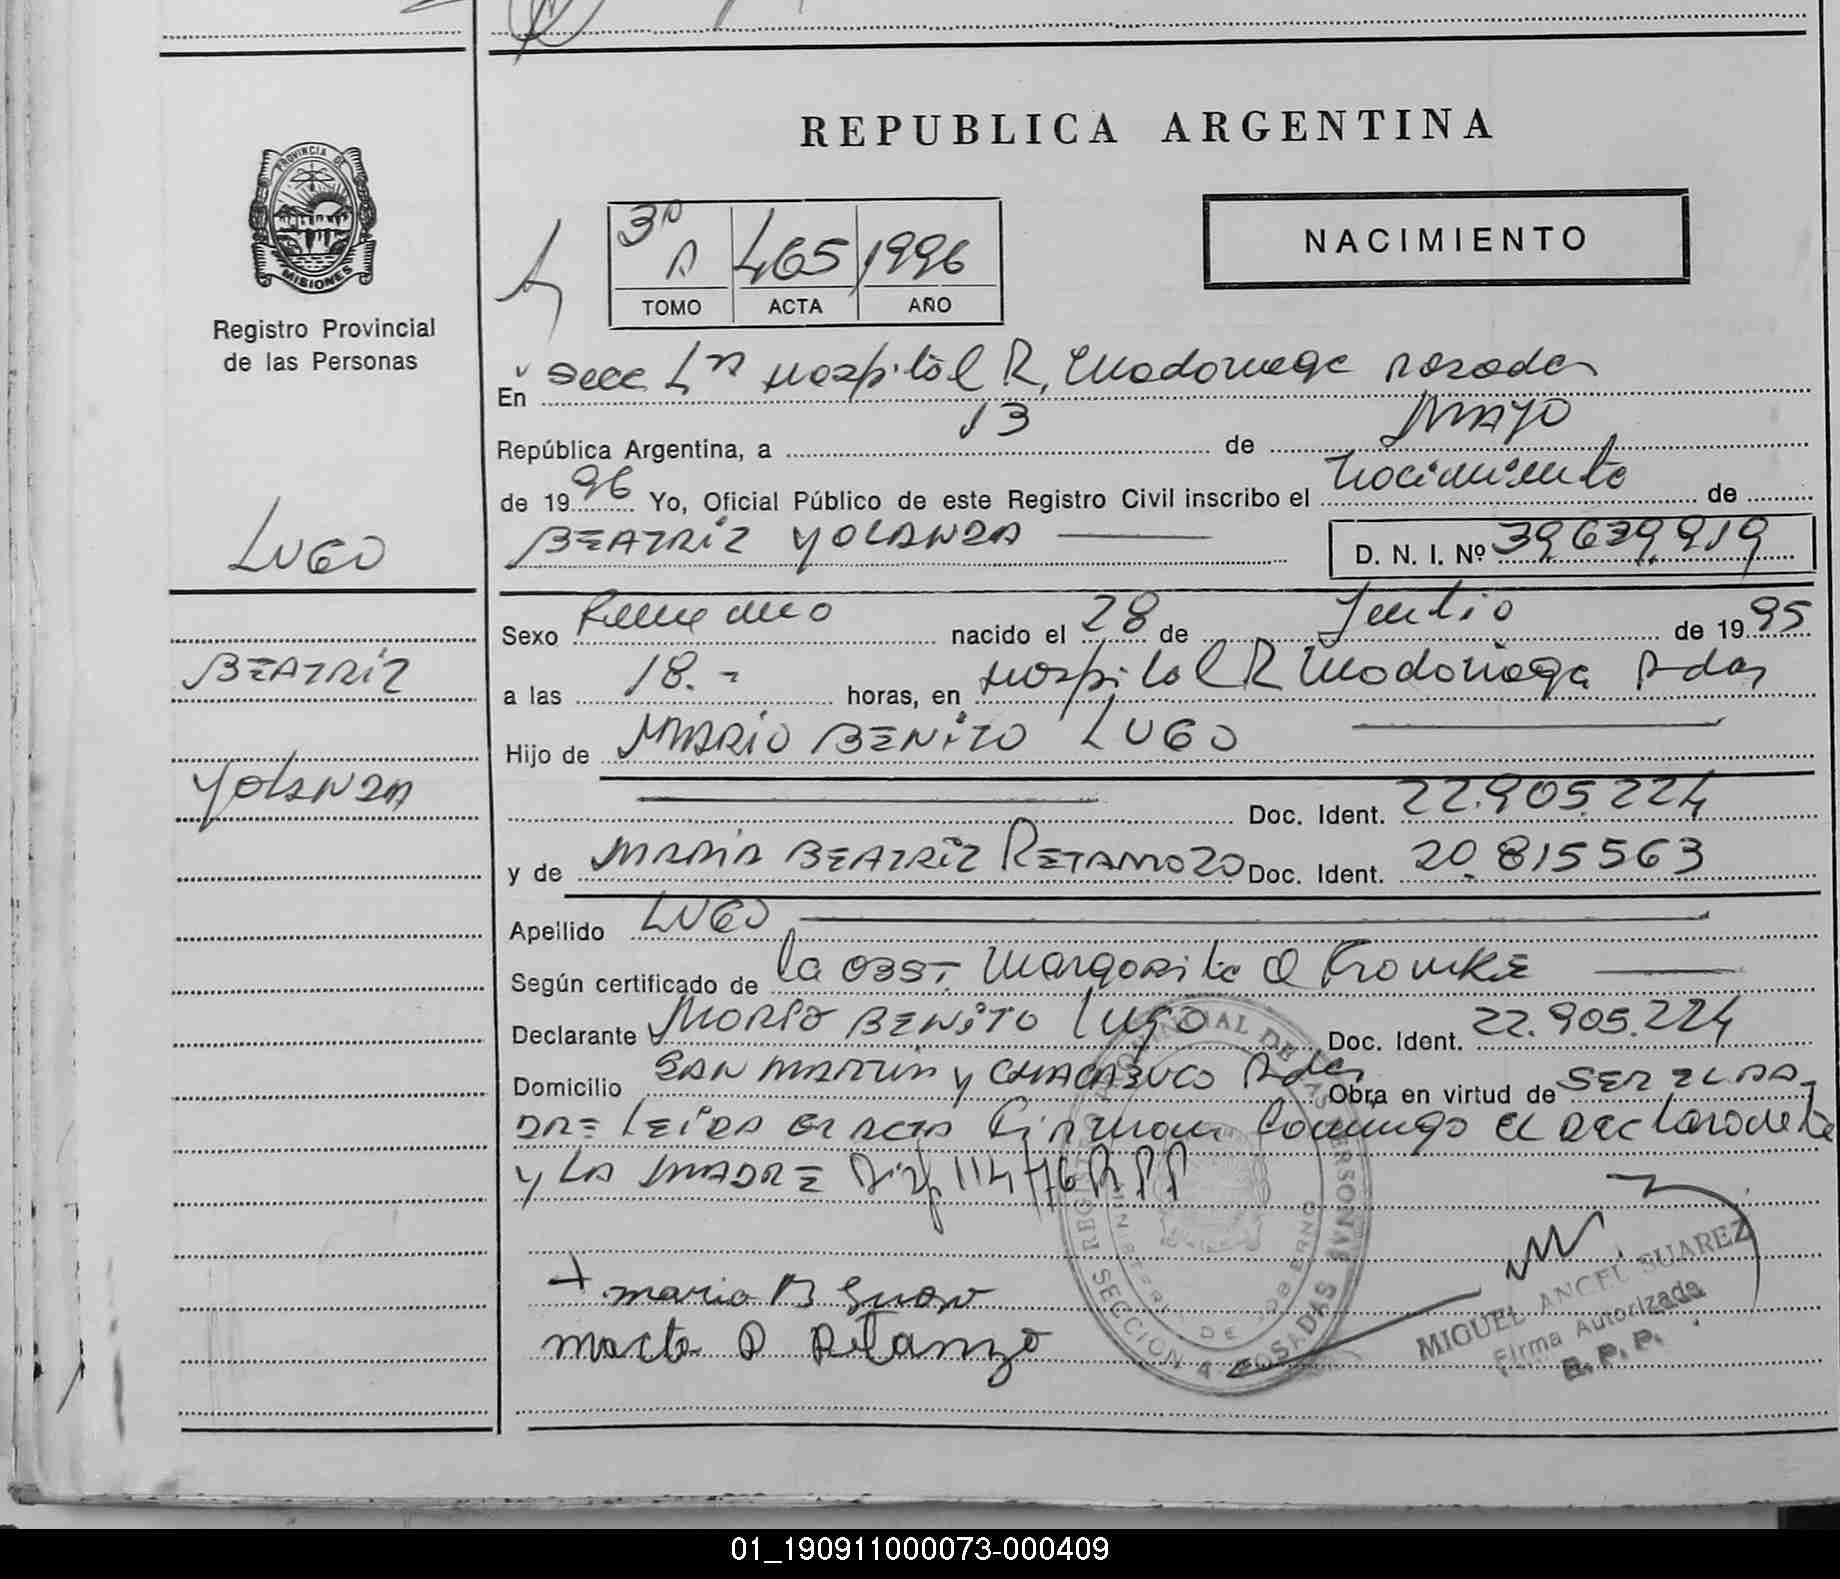 REPUBLICA ARGENTINA
PROVINCIA DE
MISIONES
Registro Provincial
de las Personas
3º A 465 1996
TOMO ACTA AÑO
NACIMIENTO
En Secc 4ta Hospital R. Madariaga Posadas
República Argentina, a 13 de MAYO
de 1996 Yo, Oficial Público de este Registro Civil inscribo el nacimiento de
BEATRIZ YOLANDA D. N. I. Nº 39.639.919
LUGO
BEATRIZ
YOLANDA
Sexo Femenino nacido el 28 de Julio de 1995
a las 18.- horas, en Hospital R Madariaga Pdas
Hijo de MARIO BENITO LUGO
Doc. Ident. 22.905.224
y de MARIA BEATRIZ RETAMOZO Doc. Ident. 20.815563
Apellido LUGO
Según certificado de la OBST. Margarita
Declarante MARIO BENITO LUGO Doc. Ident. 22.905.224
Domicilio SAN MARTIN y CHACABUCO Pdas Obra en virtud de SER EL PA-
DRE LEIDA EL ACTA Firman Conmigo el DEClarante
y LA MADRE 114/76 R P P
REGISTRO PROVINCIAL DE LAS PERSONAS
SECCION 4 POSADAS
MINISTERIO DE GOBIERNO
+ mario B
MIGUEL ANGEL SUAREZ
Firma Autorizada
R. P. P.
01_190911000073-000409